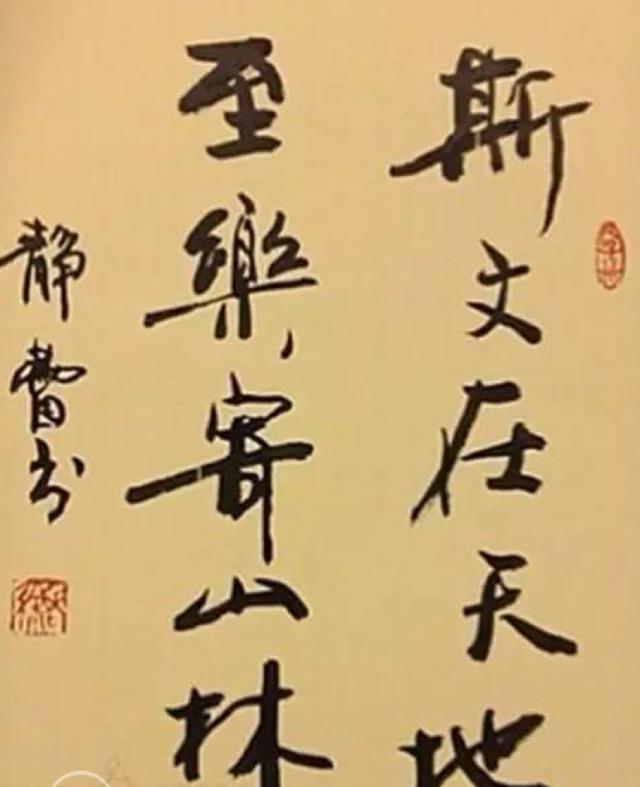 斯文在天地
至樂寄山林
静書